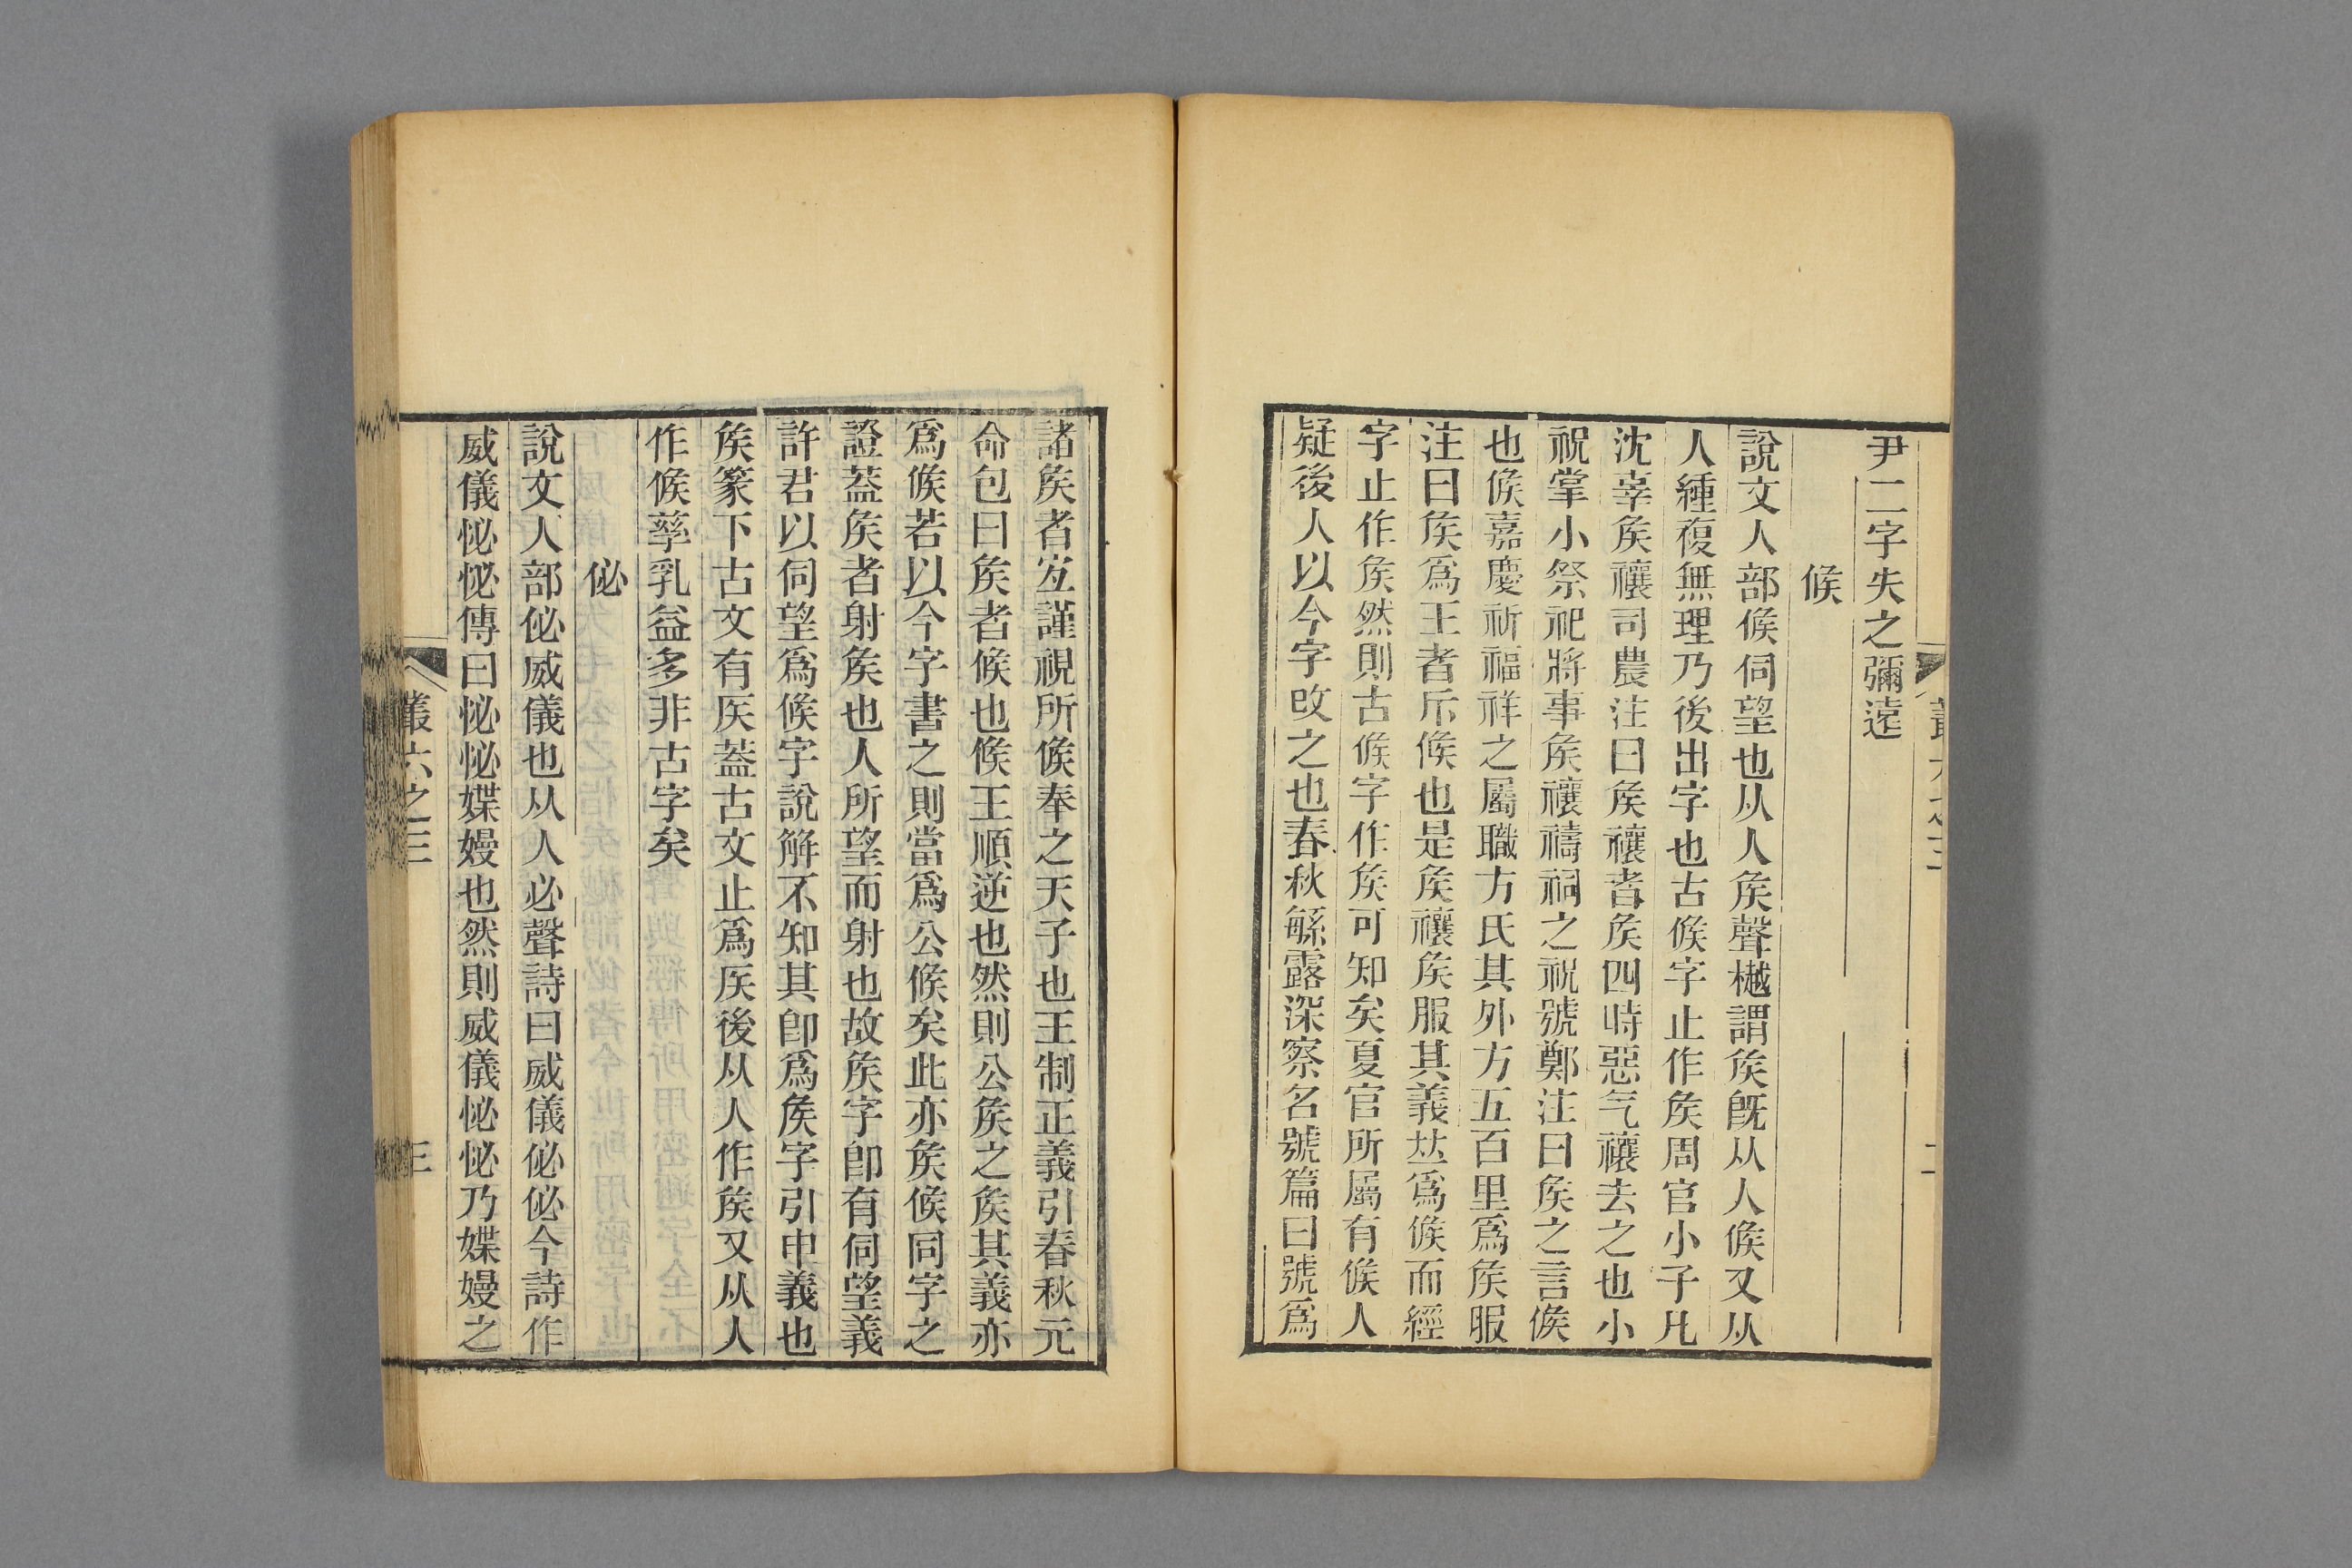 尹二字失之彌遠
候
說文人部候伺望也从人矦聲樾謂矦旣从人候又从
人緟複無理乃後出字也古候字止作矦周官小子凡
沈辜矦禳司農注曰矦禳者矦四時惡气禳去之也小
祝掌小祭祀將事矦禳禱祠之祝號鄭注曰矦之言候
也候嘉慶祈福祥之屬職方氏其外方五百里爲矦服
注曰矦爲王者斥候也是矦禳矦服其義竝爲候而經
字止作矦然則古候字作矦可知矣夏官所屬有候人
疑後人以今字改之也春秋繇露深察名號篇曰號爲
諸矦者宐謹視所候奉之天子也王制正義引春秋元
命包曰矦者候也候王順逆也然則公矦之矦其義亦
爲候若以今字書之則當爲公候矣此亦矦候同字之
證蓋矦者射矦也人所望而射也故矦字卽有伺望義
許君以伺望爲候字說解不知其卽爲矦字引申義也
矦篆下古文有㑨蓋古文止爲㑨後从人作矦又从人
作候孳乳益多非古字矣
佖
說文人部佖威儀也从人必聲詩曰威儀佖佖今詩作
威儀怭怭傳曰怭怭媟嫚也然則威儀怭怭乃媟嫚之
叢六之三
三